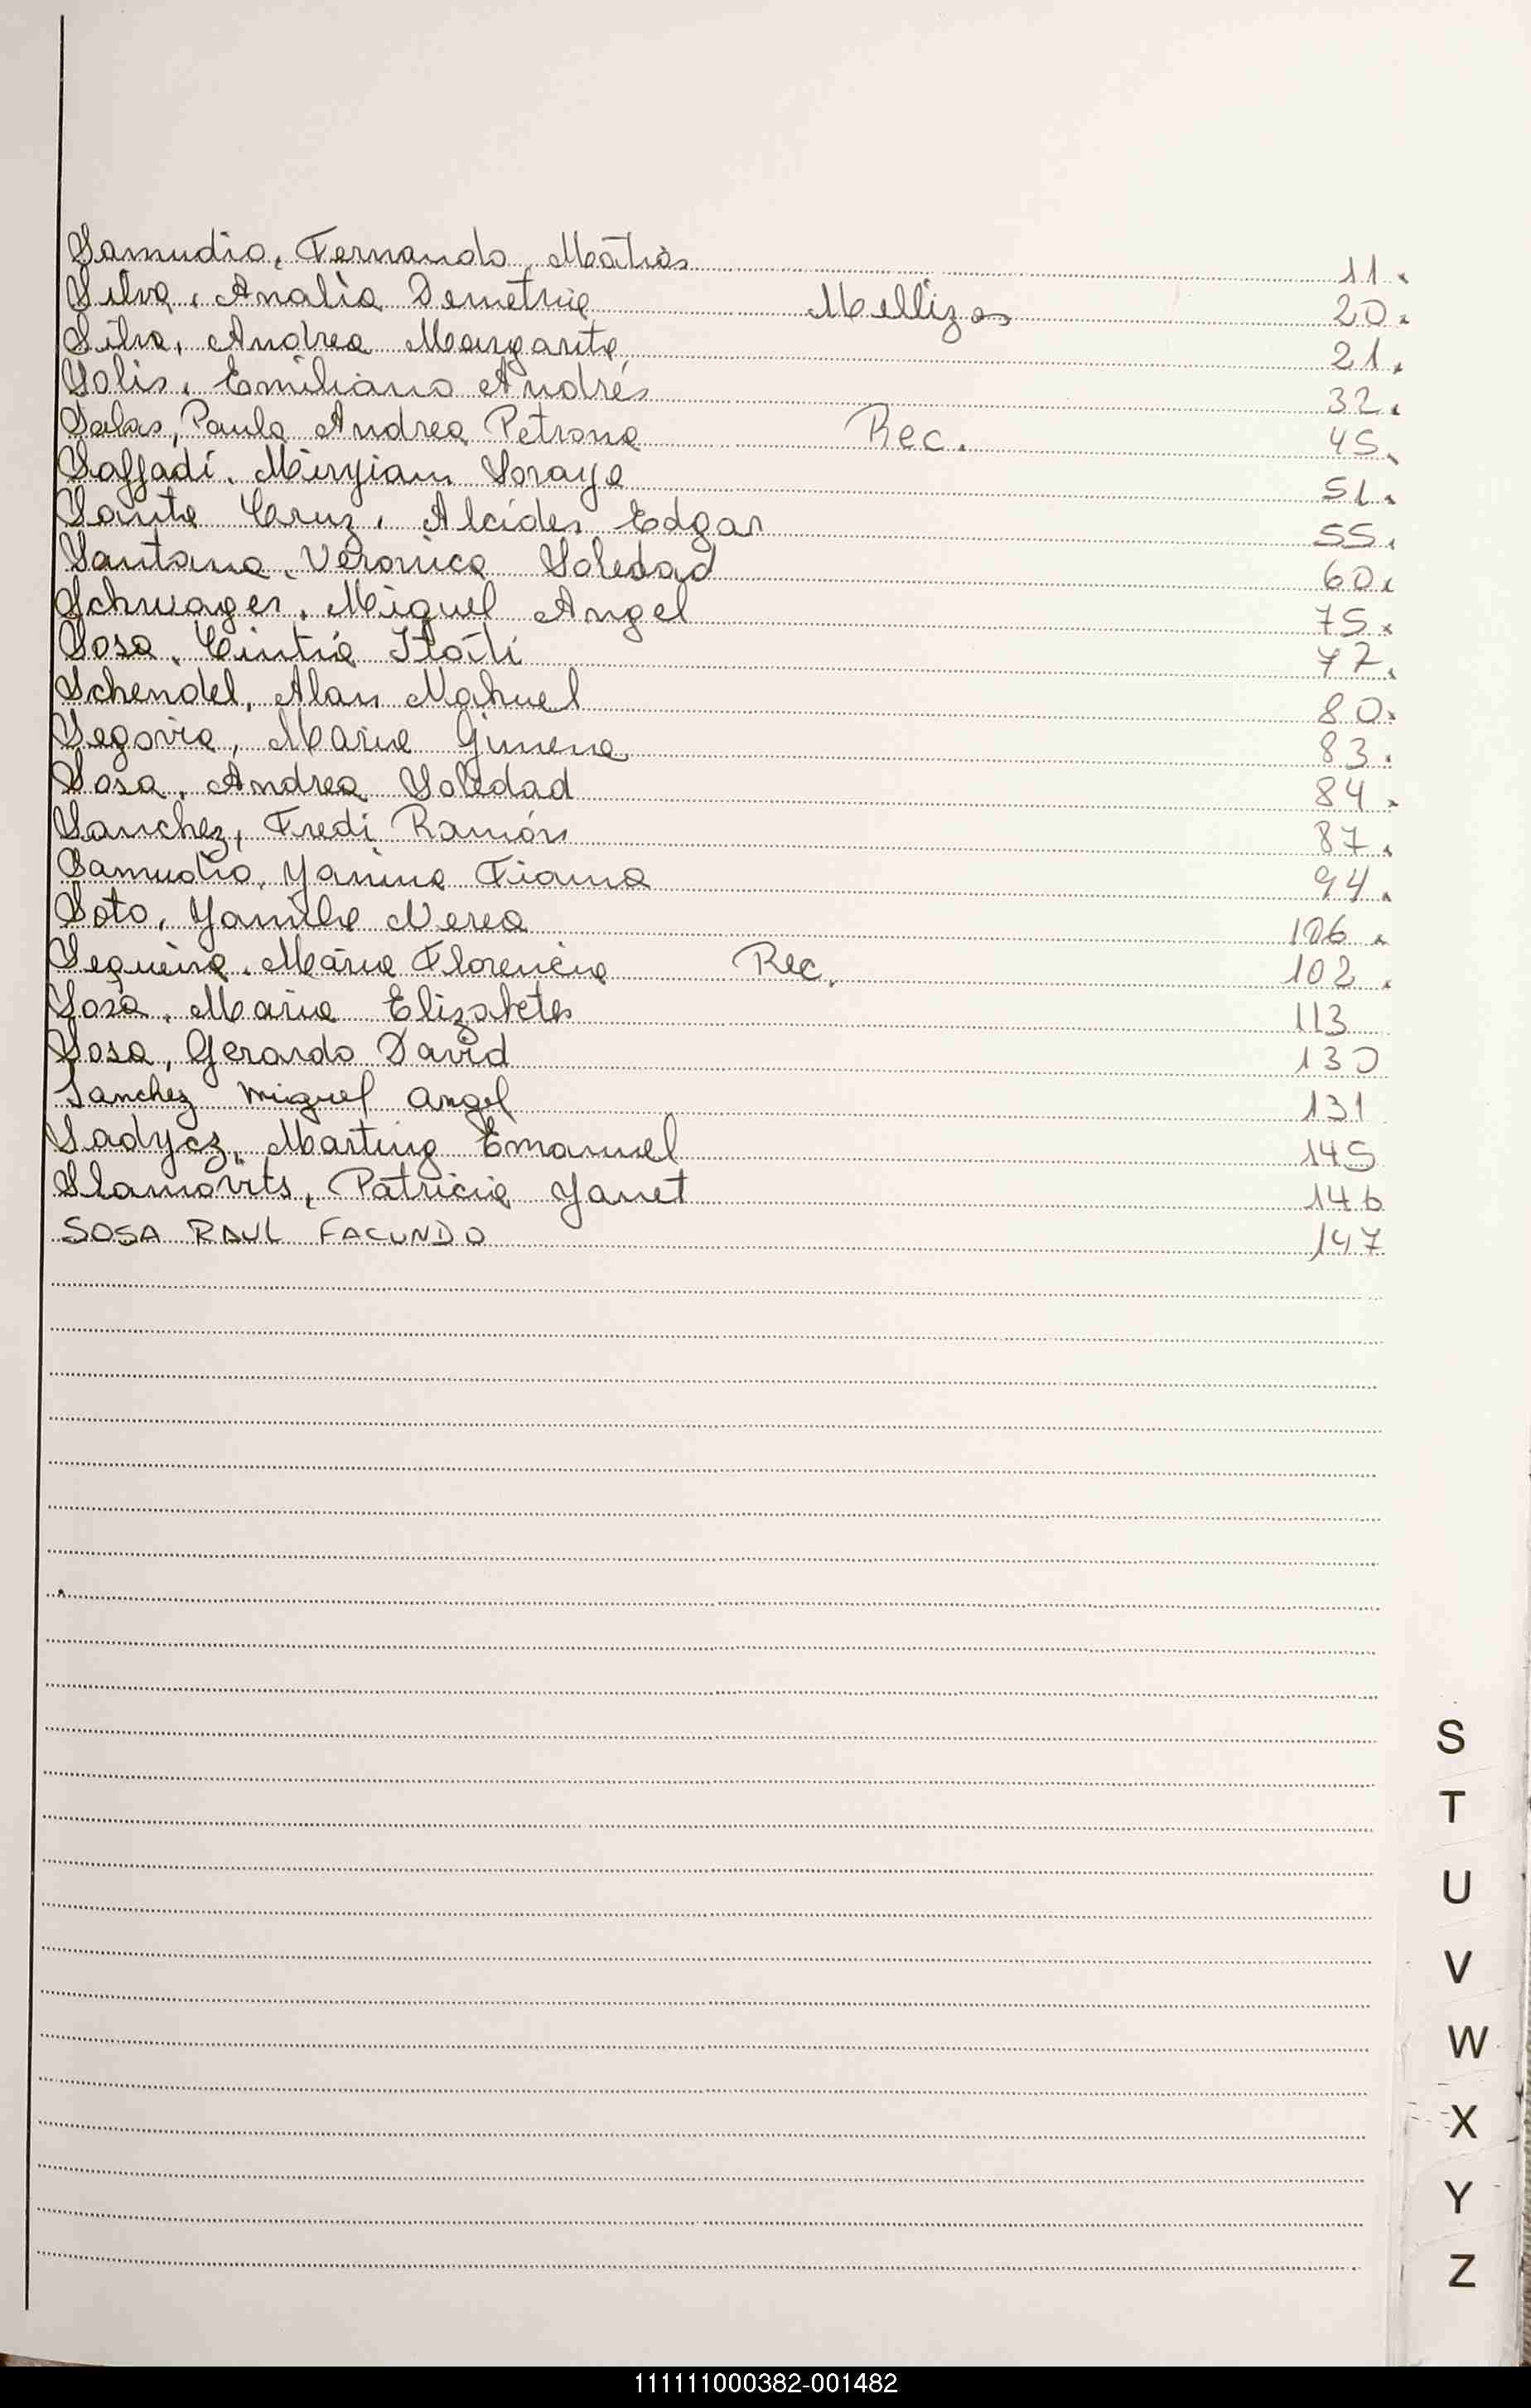 Samudio, Fernando Matías 11.
Silva, Analía Demetria Mellizas 20.
Silva, Andrea Margarita 21.
Solis, Emiliano Andrés 32.
Salas, Paula Andrea Petrona Rec. 45.
Saffadi, Miryiam Soraya 51.
Santa Cruz, Alcides Edgar 55.
Santana, Veronica Soledad 60.
Schwager, Miguel Angel 75.
Sosa, Cintia Itatí 77.
Schendel, Alan Nahuel 80.
Segovia, Maria Gimena 83.
Sosa, Andrea Soledad 84.
Sanchez, Fredi Ramón 87.
Samudio, Yanina Fiama 94.
Soto, Yamila Nerea 106.
Sequeira, Maria Florencia Rec. 102.
Sosa, Maria Elizabeth 113
Sosa, Gerardo David 130
Sanchez Miguel Angel 131
Sadycz, Marting Emanuel 145
Slamovits, Patricia Yanet 146
SOSA RAUL FACUNDO 147
S
T
U
V
W
X
Y
Z
111111000382-001482